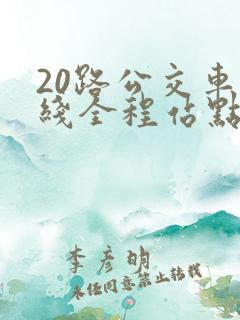 20路公交車
綫全程佔點
李彥明
未经同意禁止转载